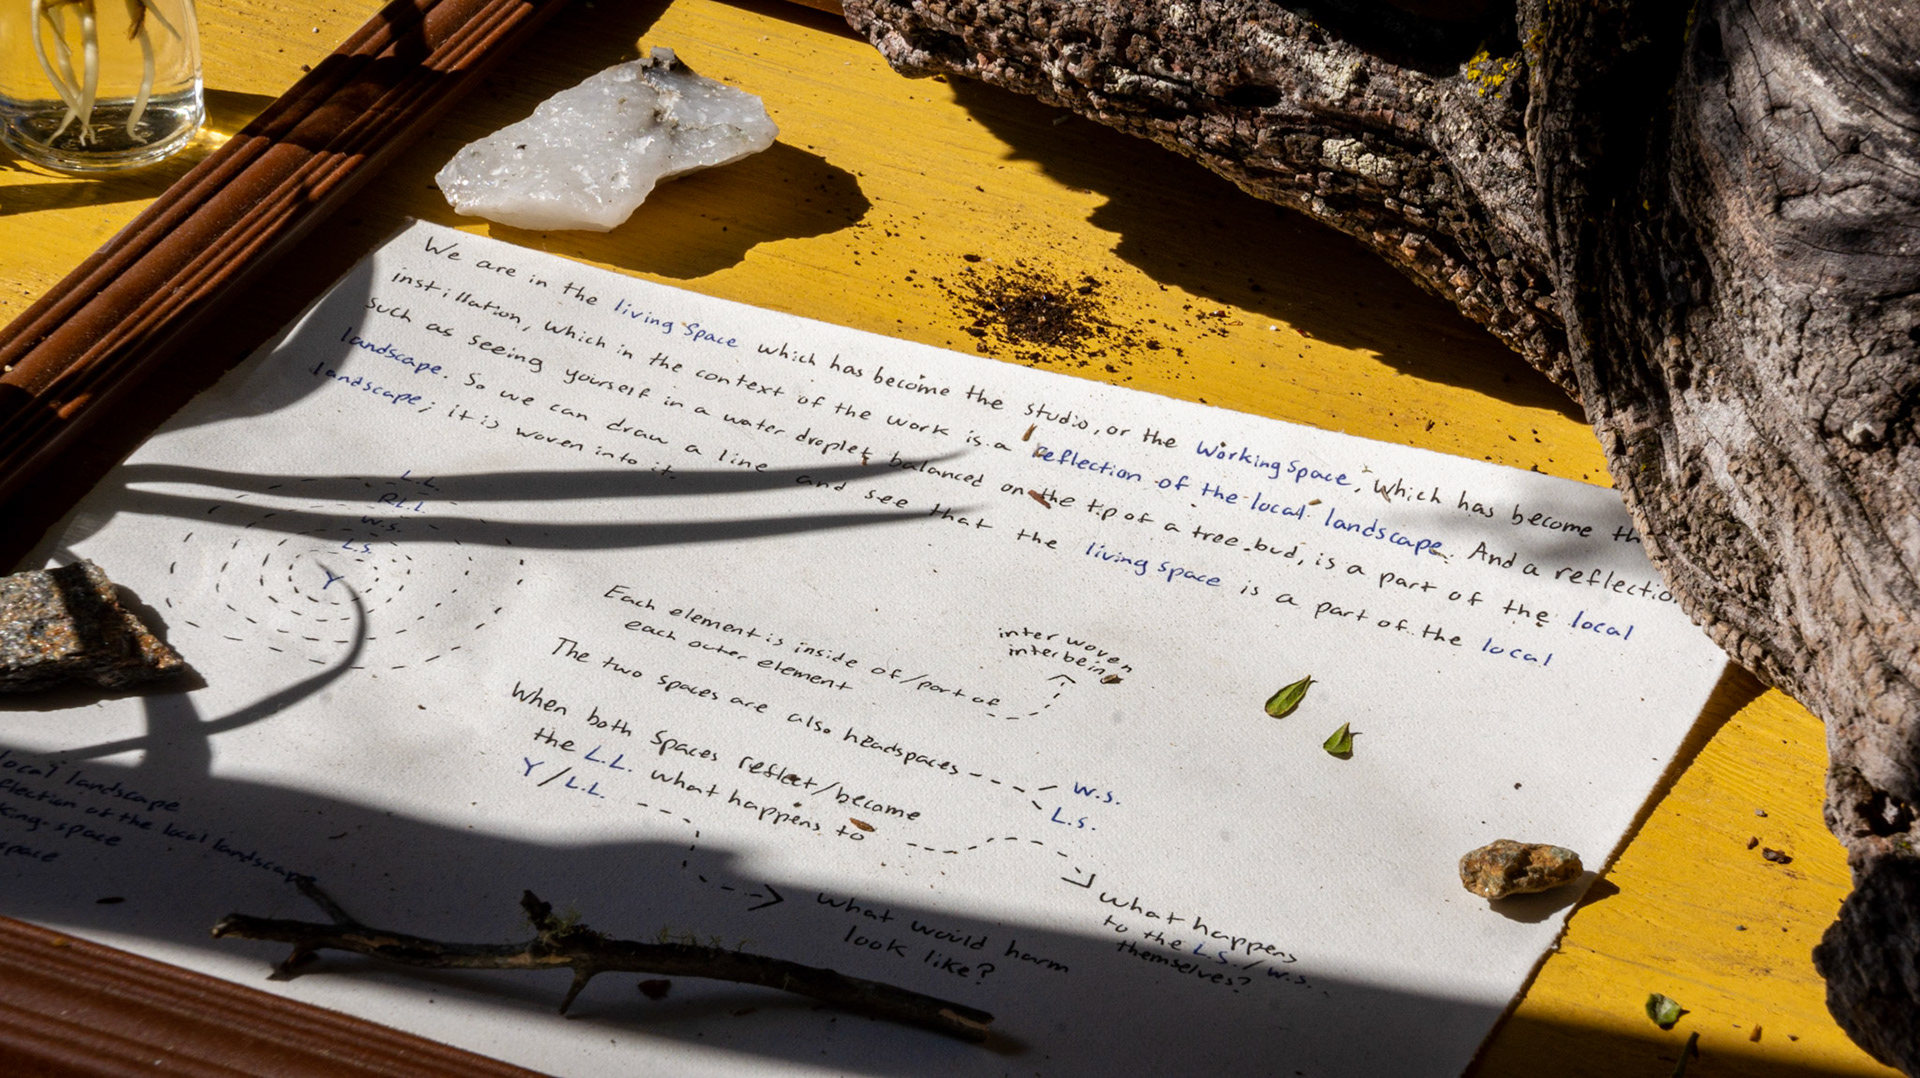 We are in the living Space which has become the studio, or the Working Space, which has become th
instillation, which in the context of the work is a reflection of the local landscape. And a reflectio
such as seeing yourself in a water droplet balanced on the tip of a tree bud, is a part of the local
landscape. So we can draw a line and see that the living space is a part of the local
landscape; it is woven into it.
L.L.
R.L.L.
W.S.
L.S.
Y
Each element is inside of/part of
each outer element
inter woven
interbeing
The two spaces are also headspaces
W.S.
L.S.
When both Spaces reflect/become
the L.L. what happens to
Y/L.L.
What happens
to the L.S./W.S.
themselves?
What would harm
look like?
local landscape
flection of the local landscape
king-space
space